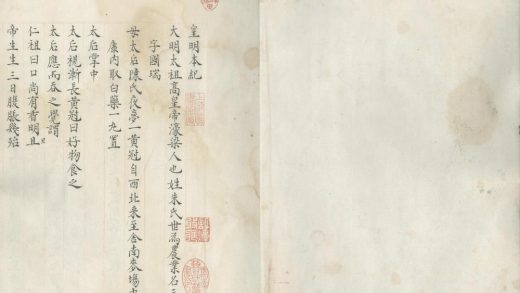 皇明本紀
大明太祖高皇帝濠梁人也姓朱氏世為農業名
字國瑞
母太后陳氏夜夢一黃冠自西北來至舍南麥場
康內取白藥一丸置
太后掌中
太后視漸長黃冠曰好物食之
太后應而吞之覺謂
仁祖曰口尚有香明且
帝生生三日腹脹幾殆